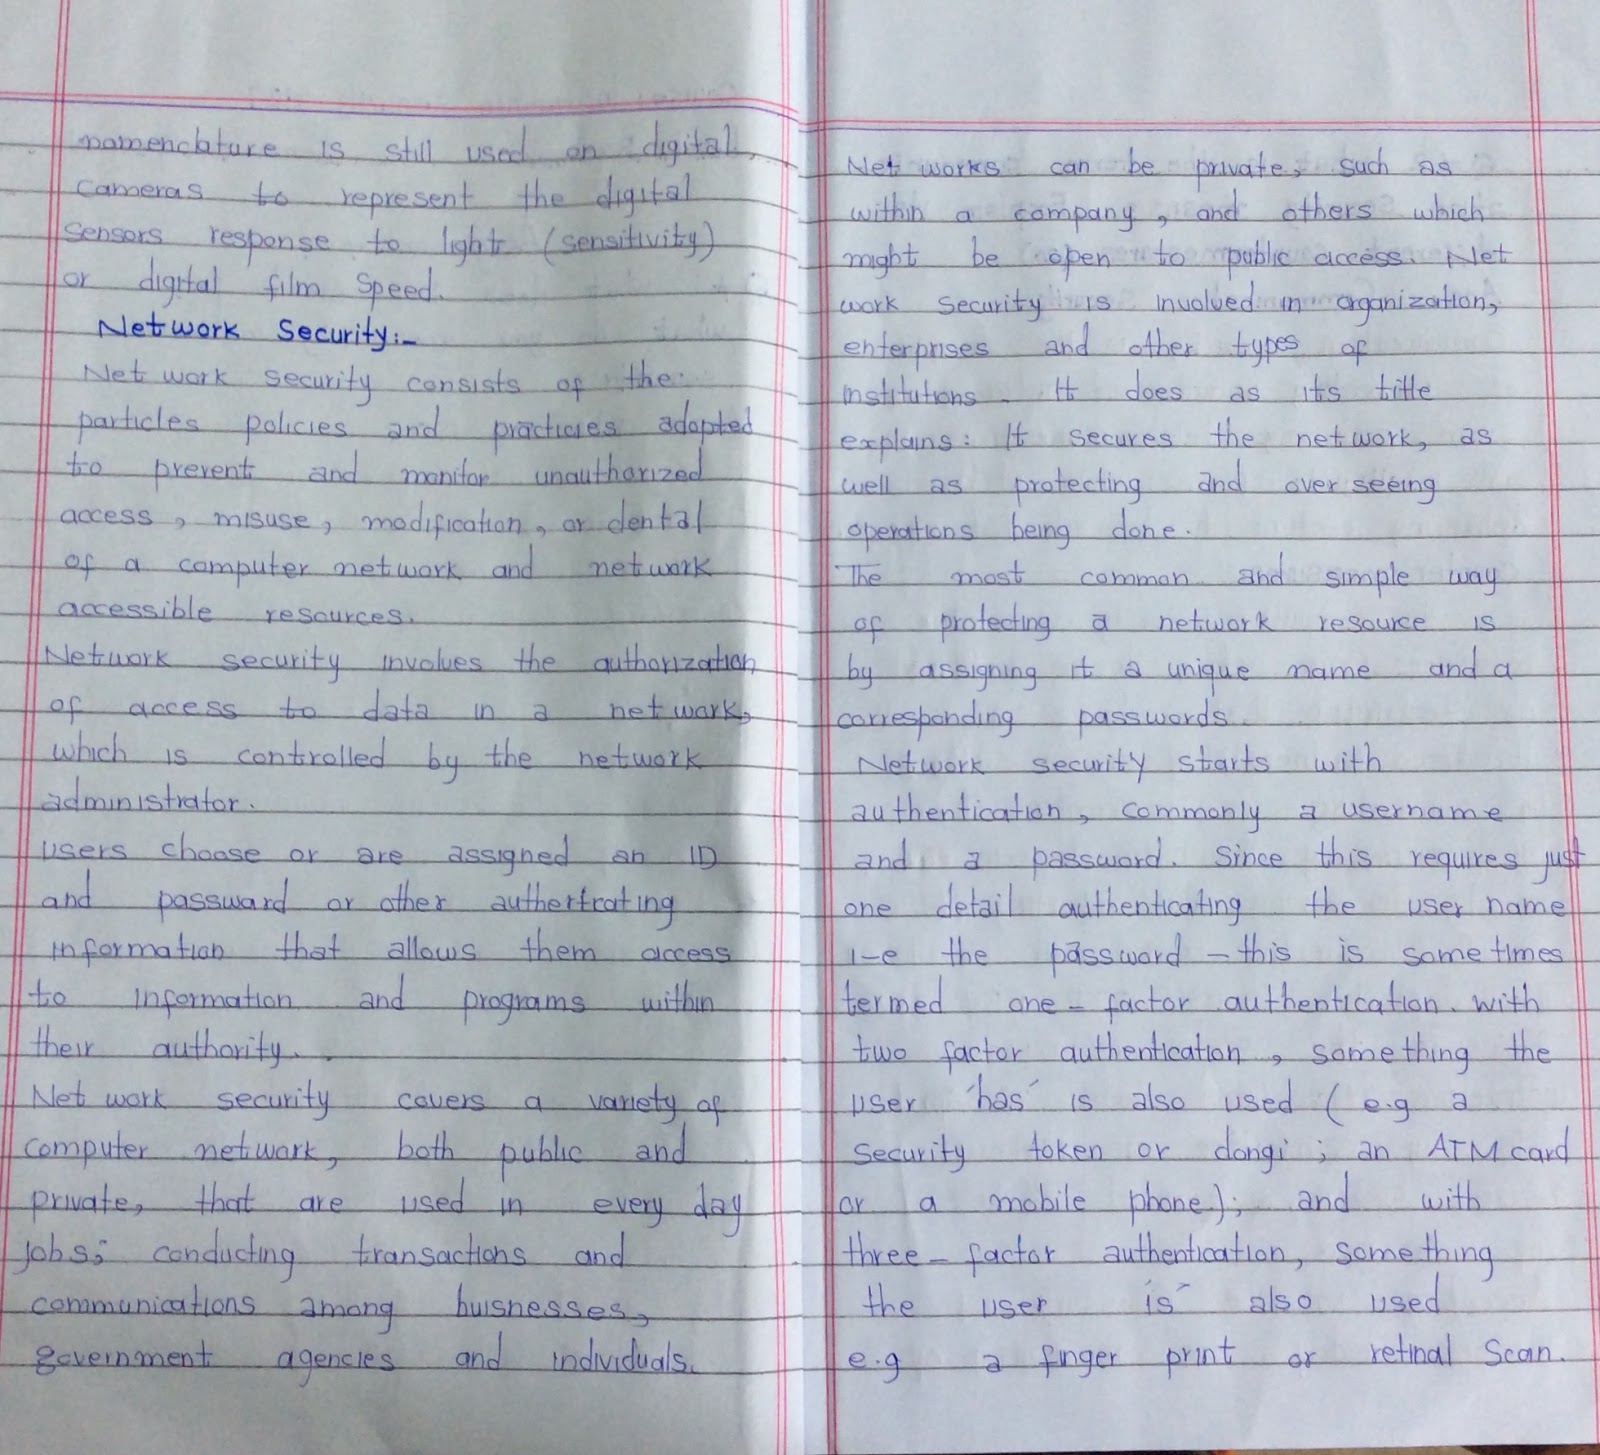 nomenclature is still used on digital
cameras to represent the digital
sensors response to light (sensitivity)
or digital film speed.
Network Security:-
Net work security consists of the
particles policies and practicies adopted
to prevent and monitor unauthorized
access, misuse, modification, or dental
of a computer network and network
accessible resources.
Network security involves the authorization
of access to data in a net work,
which is controlled by the network
administrator.
users choose or are assigned an ID
and passward or other autherticating
information that allows them access
to information and programs within
their authority.
Net work security covers a variety of
computer network, both public and
private, that are used in every day
jobs; conducting transactions and
communications among buisnesses,
government agencies and individuals.
Net works can be private, such as
within a company, and others which
might be open to public access. Net
work security is involved in organization,
enterprises and other types of
institutions. It does as its title
explains: It secures the net work, as
well as protecting and over seeing
operations being done.
The most common and simple way
of protecting a network resource is
by assigning it a unique name and a
corresponding passwords.
Network security starts with
authentication, commonly a username
and a password. Since this requires just
one detail authenticating the user name
i-e the password - this is some times
termed one-factor authentication. with
two factor authentication, something the
user 'has' is also used (e.g a
security token or dongi; an ATM card
or a mobile phone); and with
three-factor authentication, something
the user 'is' also used
e.g a finger print or retinal scan.